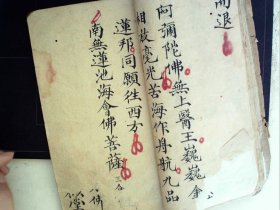 而退
阿彌陀佛無上醫王巍巍金
相放毫光苦海作舟航九品
蓮邦同願往西方
南無蓮池海會佛菩薩